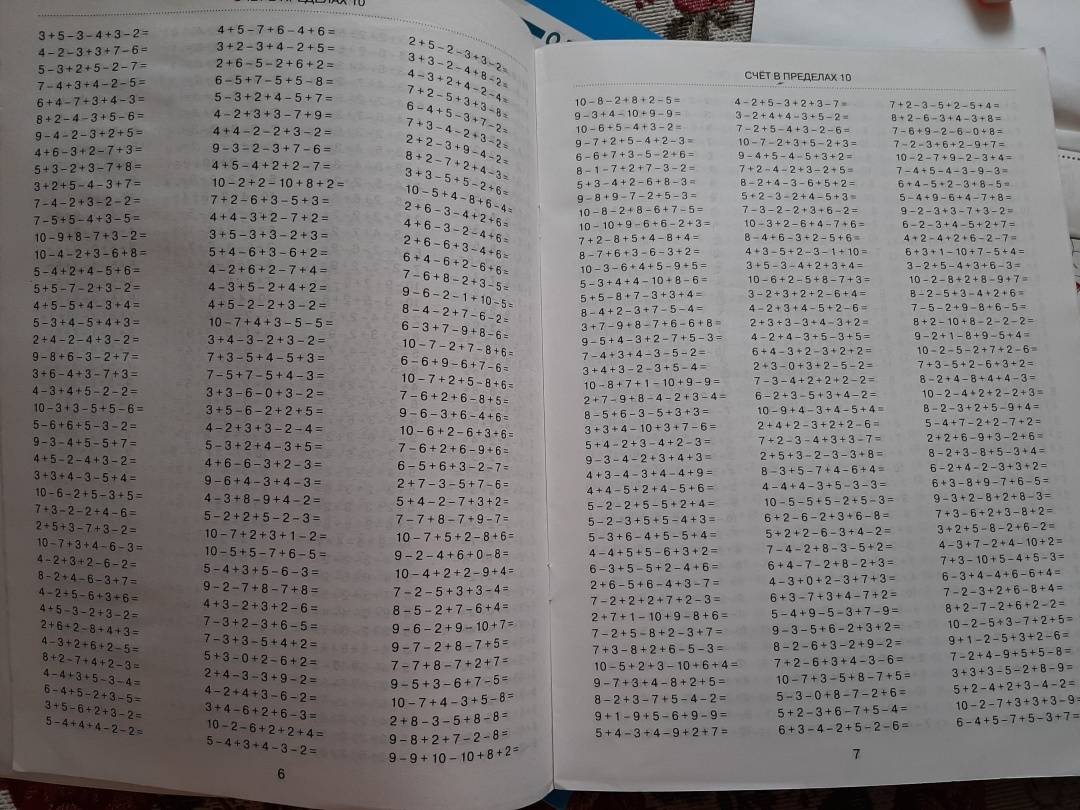 СЧЁТ В ПРЕДЕЛАХ 10
3+5−3−4+3−2=
4−2−3+3+7−6=
5−3+2+5−2−7=
7−4+3+4−2−5=
6+4−7+3+4−3=
8+2−4−3+5−6=
9−4−2−3+2+5=
4+6−3+2−7+3=
5+3−2+3−7+8=
3+2+5−4−3+7=
7−4−2+3−2−2=
7−5+5−4+3−5=
10−9+8−7+3−2=
10−4−2+3−6+8=
5−4+2+4−5+6=
5+5−7−2+3−2=
4+5−5+4−3+4=
5−3+4−5+4+3=
2+4−2−4+3−2=
9−8+6−3−2+7=
3+6−4+3−7+3=
4−3+4+5−2−2=
10−3+3−5+5−6=
5−6+6+5−3−2=
9−3−4+5−5+7=
4+5−2−4+3−2=
3+3+4−3−5+4=
10−6−2+5−3+5=
7+3−2−2+4−6=
2+5+3−7+3−2=
10−7+3+4−6−3=
4−2+3+2−6−2=
8−2+4−6−3+7=
4−2+5−6+3+6=
4+5−3−2+3−2=
2+6+2−8+4+3=
4−3+2+6+2−5=
8+2−7+4+2−3=
4−4+3+5−3−4=
6−4+5−2+3−5=
3+5−6+2+3−2=
5−4+4+4−2−2=
4+5−7+6−4+6=
3+2−3+4−2+5=
2+6−5−2+6+2=
6−5+7−5+5−8=
5−3+2+4−5+7=
4−2+3+3−7+9=
4+4−2−2+3−2=
9−3−2−3+7−6=
4+5−4+2+2−7=
10−2+2−10+8+2=
7+2−6+3−5+3=
4+4−3+2−7+2=
3+5−3+3−2+3=
5+4−6+3−6+2=
4−2+6+2−7+4=
4−3+5−2+4+2=
4+5−2−2+3−2=
10−7+4+3−5−5=
3+4−3−2+3−2=
7+3−5+4−5+3=
7−5+7−5+4−3=
3+3−6−0+3−2=
3+5−6−2+2+5=
4−2+3+3−2−4=
5−3+2+4−3+5=
4+6−6−3+2−3=
9−6+4−3+4−3=
4−3+8−9+4−2=
5−2+2+5−2−3=
10−7+2+3+1−2=
10−5+5−7+6−5=
5−4+3+5−6−3=
9−2−7+8−7+8=
4+3−2+3+2−6=
7−3+2−3+6−5=
7−3+3−5+4+2=
5+3−0+2−6+2=
2+4−3−3+9−2=
4−2+4+3−6−2=
3+4−6+2+6−3=
10−2−6+2+2+4=
5−4+3+4−3−2=
2+5−2−3+3−2=
3+3−2−4+8−2=
4−3+2+4−2−4=
7+2−5+3+3−8=
6−4+5+3−7−2=
7+3−4−2+3−2=
2+2−3+9−4−2=
8+2−7+2+4−3=
3+3−5+5−2+6=
10−5+4−8+6−4=
2+6−3−4+2+6=
4+6−3−2−4+6=
2+6−6+3−4+6=
6+4−6+2−6+6=
7−6+8−2+3−5=
9−6−2−1+10−5=
8−4−2+7−6−2=
6−3+7−9+8−6=
10−7−2+7−8+6=
6−6+9−6+7−6=
10−7+2+5−8+6=
7−6+2+6−8+5=
9−6−3+6−4+6=
10−6+2−6+3+6=
7−6+2+6−9+6=
6−5+6+3−2−7=
2+7−3−5+7−6=
5+4−2−7+3+2=
7−7+8−7+9−7=
10−7+5+2−8+6=
9−2−4+6+0−8=
10−4+2+2−9+4=
7−2−5+3+3−4=
8−5−2+7−6+4=
9−6−2+9−10+7=
9−7−2+8−7+5=
7−7+8−7+2+7=
9−5+3−6+7−5=
10−7+4−3+5−8=
2+8−3−5+8−8=
9−8+2+7−2−8=
9−9+10−10+8+2=
6
СЧЁТ В ПРЕДЕЛАХ 10
10−8−2+8+2−5=
9−3+4−10+9−9=
10−6+5−4+3−2=
9−7+2+5−4+2−3=
6−6+7+3−5−2+6=
8−1−7+2+7−3−2=
5+3−4+2−6+8−3=
9−8+9−7−2+5−3=
10−8−2+8−6+7−5=
10−10+9−6+6−2+3=
7+2−8+5+4−8+4=
8−7+6+3−6−3+2=
10−3−6+4+5−9+5=
5−3+4+4−10+8−6=
5+5−8+7−3+3+4=
8−4+2−3+7−5−4=
3+7−9+8−7+6−6+8=
9−5+4−3+2−7+5−3=
7−4+3+4−3−5−2=
3+4+3−2−3+5−4=
10−8+7+1−10+9−9=
2+7−9+8−4−2+3−4=
8−5+6−3−5+3+3=
3+3+4−10+3+7−6=
5+4−2+3−4+2−3=
9−3−4−2+3+4+3=
4+3−4−3+4+4−9=
4+4−5+2+4−5+6=
5−2−2+5−5+2+4=
5−2−3+5+5−4+3=
5−3+6−4+5−5+4=
4−4+5+5−6+3+2=
6−3+5−5+2−4+6=
2+6−5+6−4+3−7=
7−2+2+2+7+2−3=
2+7+1−10+9−8+6=
7−2+5−8+2−3+7=
7+3−8+2+6−5−3=
10−5+2+3−10+6+4=
9−7+3+4−8+2+5=
8−2+3−7+5−4−2=
9+1−9+5−6+9−9=
5+4−3+4−9+2+7=
4−2+5−3+2+3−7=
3−2+4+4−3+5−2=
7−2+5−4+3−2−6=
10−7−2+3+5−2+3=
9−4+5−4−5+3+2=
7+2−4−2+3−2+5=
8−2+4−3−6+5+2=
5+2−3−2+4−5+3=
7−3−2−2+3+6−2=
10−3+2−6+4−7+6=
8−4+6−3+2−5+6=
4+3−5+2−3−1+10=
3+5−3−4+2+3+4=
10−6+2−5+8−7+3=
3−2+3+2+2−6+4=
4−2+3+4−5+2−6=
2+3+3−3+4−3+2=
4−2+4−3+5−3+5=
6+4−3+2−3+2+2=
2+3−0+3+2−5−2=
7−3−4+2+2+2−2=
6−2+3−5+3+4−2=
10−9+4−3+4−5+4=
2+4+2−3+2+2−6=
7+2−3−4+3+3−7=
2+5+3−2−3−3+8=
8−3+5−7+4−6+4=
4−4+4−3+5−3−3=
10−5−5+5−2+5−3=
6+2−6−2+3+6−8=
5+2+2−6−3+4−2=
7−4−2+8−3−5+2=
6+4−7−2+8−2+3=
4−3+0+2−3+7+3=
6+3−7+3+4−7+2=
5−4+9−5−3+7−9=
9−3−5+6−2+3+2=
8−2−6+3−2+9−2=
7+2−6+3+4−3−6=
10−7+3−5+8−7+5=
5−3−0+8−7−2+6=
5+2−3+6−7+5−4=
6+3−4−2+5−2−6=
7+2−3−5+2−5+4=
8+2−6−3+4−3+8=
7−6+9−2−6−0+8=
7−2−3+6+2−9+7=
10−2−7+9−2−3+4=
7−4+5−4−3−9−3=
6+4−5+2−3+8−5=
5−4+9−6+4−7+8=
9−2−3+3−7+3−2=
6−2−3+4−5+2+7=
4+2−4+2+6−2−7=
6+3+1−10+7−5+4=
3−2+5−4+3+6−3=
10−2−8+2+8−9+7=
8−2−5+3−4+2+6=
7−5−2+9−8+6−5=
8+2−10+8−2−2−2=
9−2+1−8+9−5+4=
10−2−5−2+7+2−6=
7+3−5+2−6+3+2=
8−2+4−8+4+4−3=
10−2−4+2+2−2+3=
8−2−3+2+5−9+4=
5−4+7−2+2−7+2=
2+2+6−9+3−2+6=
8−2+3−8+5−3+4=
6−2+4−2−3+3+2=
6+3−8+9−7+6−5=
9−3+2−8+2+8−3=
7+3−6+2+3−8+2=
3+2+5−8−2+6−2=
4−3+7−2+4−10+2=
7+3−10+5+4−5−3=
6−3+4−4+6−6+4=
7−2−3+2+6−8+4=
8+2−7−2+6+2−2=
10−2−5+3−7+2+5=
9+1−2−5+3+2−6=
7−2+4−9+5+5−8=
3+3+3−5−2+8−9=
5+2−4+2+3−4−2=
10−2−7+3+3−9+3=
6−4+5−7+5−3+7=
7